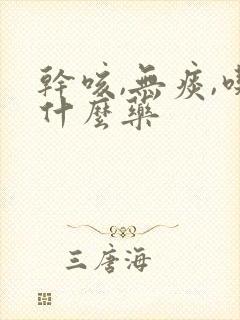 幹咳,無痰,喫
什麼藥
三唐海